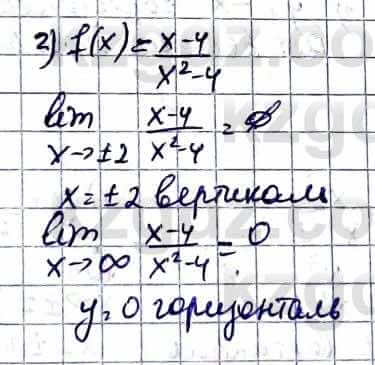 2) f(x) = (x-4)/(x²-4)
lim x→±2 (x-4)/(x²-4) = ∅
x = ±2 вертикаль
lim x→∞ (x-4)/(x²-4) = 0
y = 0 горизонталь